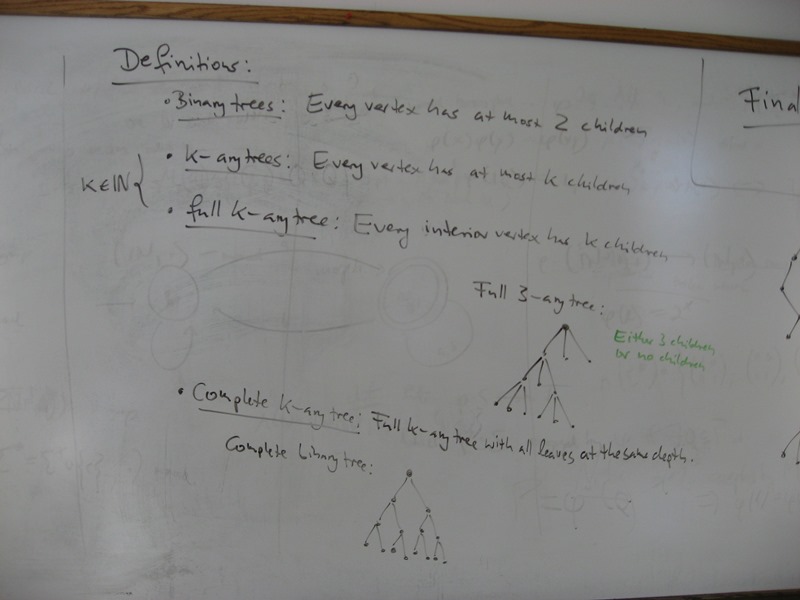 Definitions:
• Binary trees: Every vertex has at most 2 children
K∈ℕ {
• k-ary trees: Every vertex has at most k children
• full k-ary tree: Every interior vertex has k children
Full 3-ary tree:
Either 3 children
or no children
• Complete k-ary tree: Full k-ary tree with all leaves at the same depth.
Complete binary tree:
Final